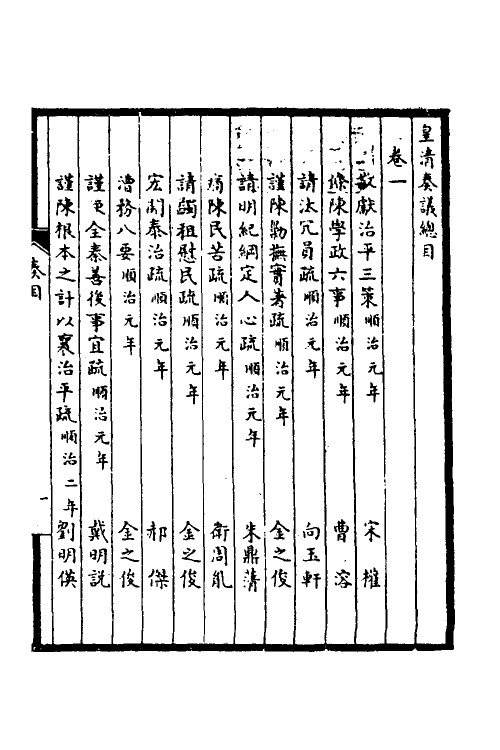 皇清奏議總目
卷一
敬獻治平三策順治元年 宋權
條陳學政六事順治元年 曹溶
請汰冗員疏順治元年 向玉軒
謹陳勦撫實著疏順治元年 金之俊
請明紀綱定人心疏順治元年 朱鼎藩
痛陳民苦疏順治元年 衛周胤
請蠲租慰民疏順治元年 金之俊
宏開泰治疏順治元年 郝傑
漕務八要順治元年 金之俊
謹 全秦善後事宜疏順治元年 戴明說
謹陳根本之計以襄治平疏順治二年 劉明偀
奏目
一